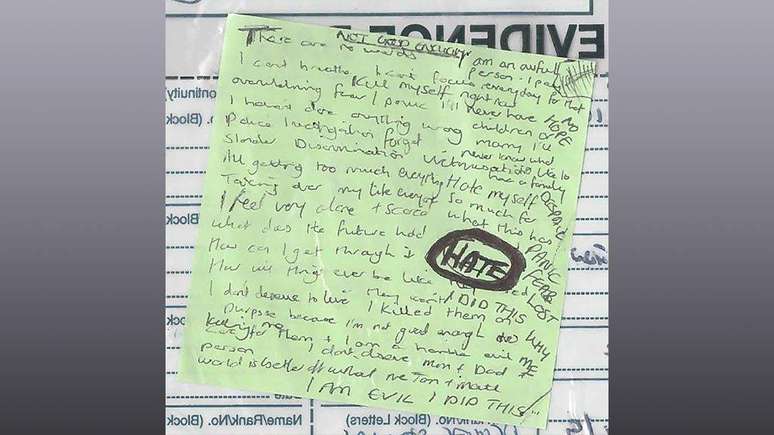 EVIDENCE
NOT GOOD ENOUGH
There are no words I am an awful person I pay
I cant breathe I cant focus everyday for that
Kill myself right now
overwhelming fear / panic I'll never have NO HOPE
I havent done anything wrong children or marry I'll
Police investigation forget never know what
Slander Discrimination Victimisation its like to have a family
All getting too much everything Hate myself DESPAIR
Taking over my life everyday so much for what this has
I feel very alone + scared PANIC
What does the future hold FEAR
How can I get through it LOST
HATE
How will things ever be like they
I DID THIS
I don't deserve to live I killed them on WHY ME
purpose because I'm not good enough to
care for them + I am a horrible evil
killing me
person I dont deserve mum + Dad +
world is better off without me
I AM EVIL I DID THIS
ontinuity)
(Block
(Block
(Block
(Block
Name/Rank/No. (Block Letters)
nk/No. (Block Letters)